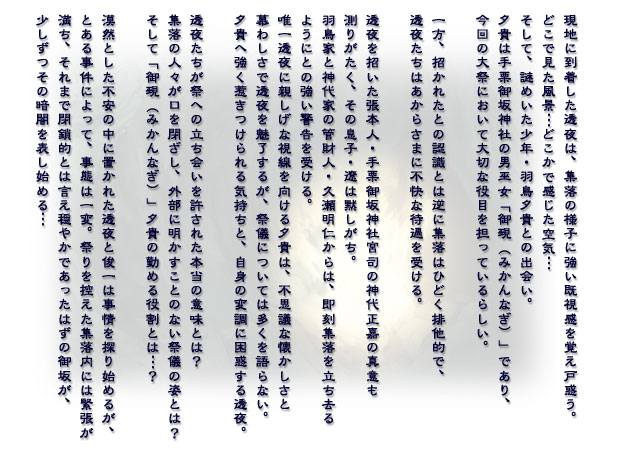 現地に到着した透夜は、集落の様子に強い既視感を覚え戸惑う。
どこで見た風景…どこかで感じた空気…
そして、謎めいた少年・羽鳥夕貴との出会い。
夕貴は手栗御坂神社の男巫女「御覡（みかんなぎ）」であり、
今回の大祭において大切な役目を担っているらしい。
一方、招かれたとの認識とは逆に集落はひどく排他的で、
透夜たちはあからさまに不快な待遇を受ける。
透夜を招いた張本人・手栗御坂神社宮司の神代正嘉の真意も
測りがたく、その息子・遼は黙しがち。
羽鳥家と神代家の管財人・久瀬明仁からは、即刻集落を立ち去る
ようにとの強い警告を受ける。
唯一透夜に親しげな視線を向ける夕貴は、不思議な懐かしさと
慕わしさで透夜を魅了するが、祭儀については多くを語らない。
夕貴へ強く惹きつけられる気持ちと、自身の変調に困惑する透夜。
透夜たちが祭への立ち会いを許された本当の意味とは？
集落の人々が口を閉ざし、外部に明かすことのない祭儀の姿とは？
そして「御覡（みかんなぎ）」夕貴の勤める役割とは…？
漠然とした不安の中に置かれた透夜と俊一は事情を探り始めるが、
とある事件によって、事態は一変。祭りを控えた集落内には緊張が
満ち、それまで閉鎖的とは言え穏やかであったはずの御坂が、
少しずつその暗闇を表し始める…